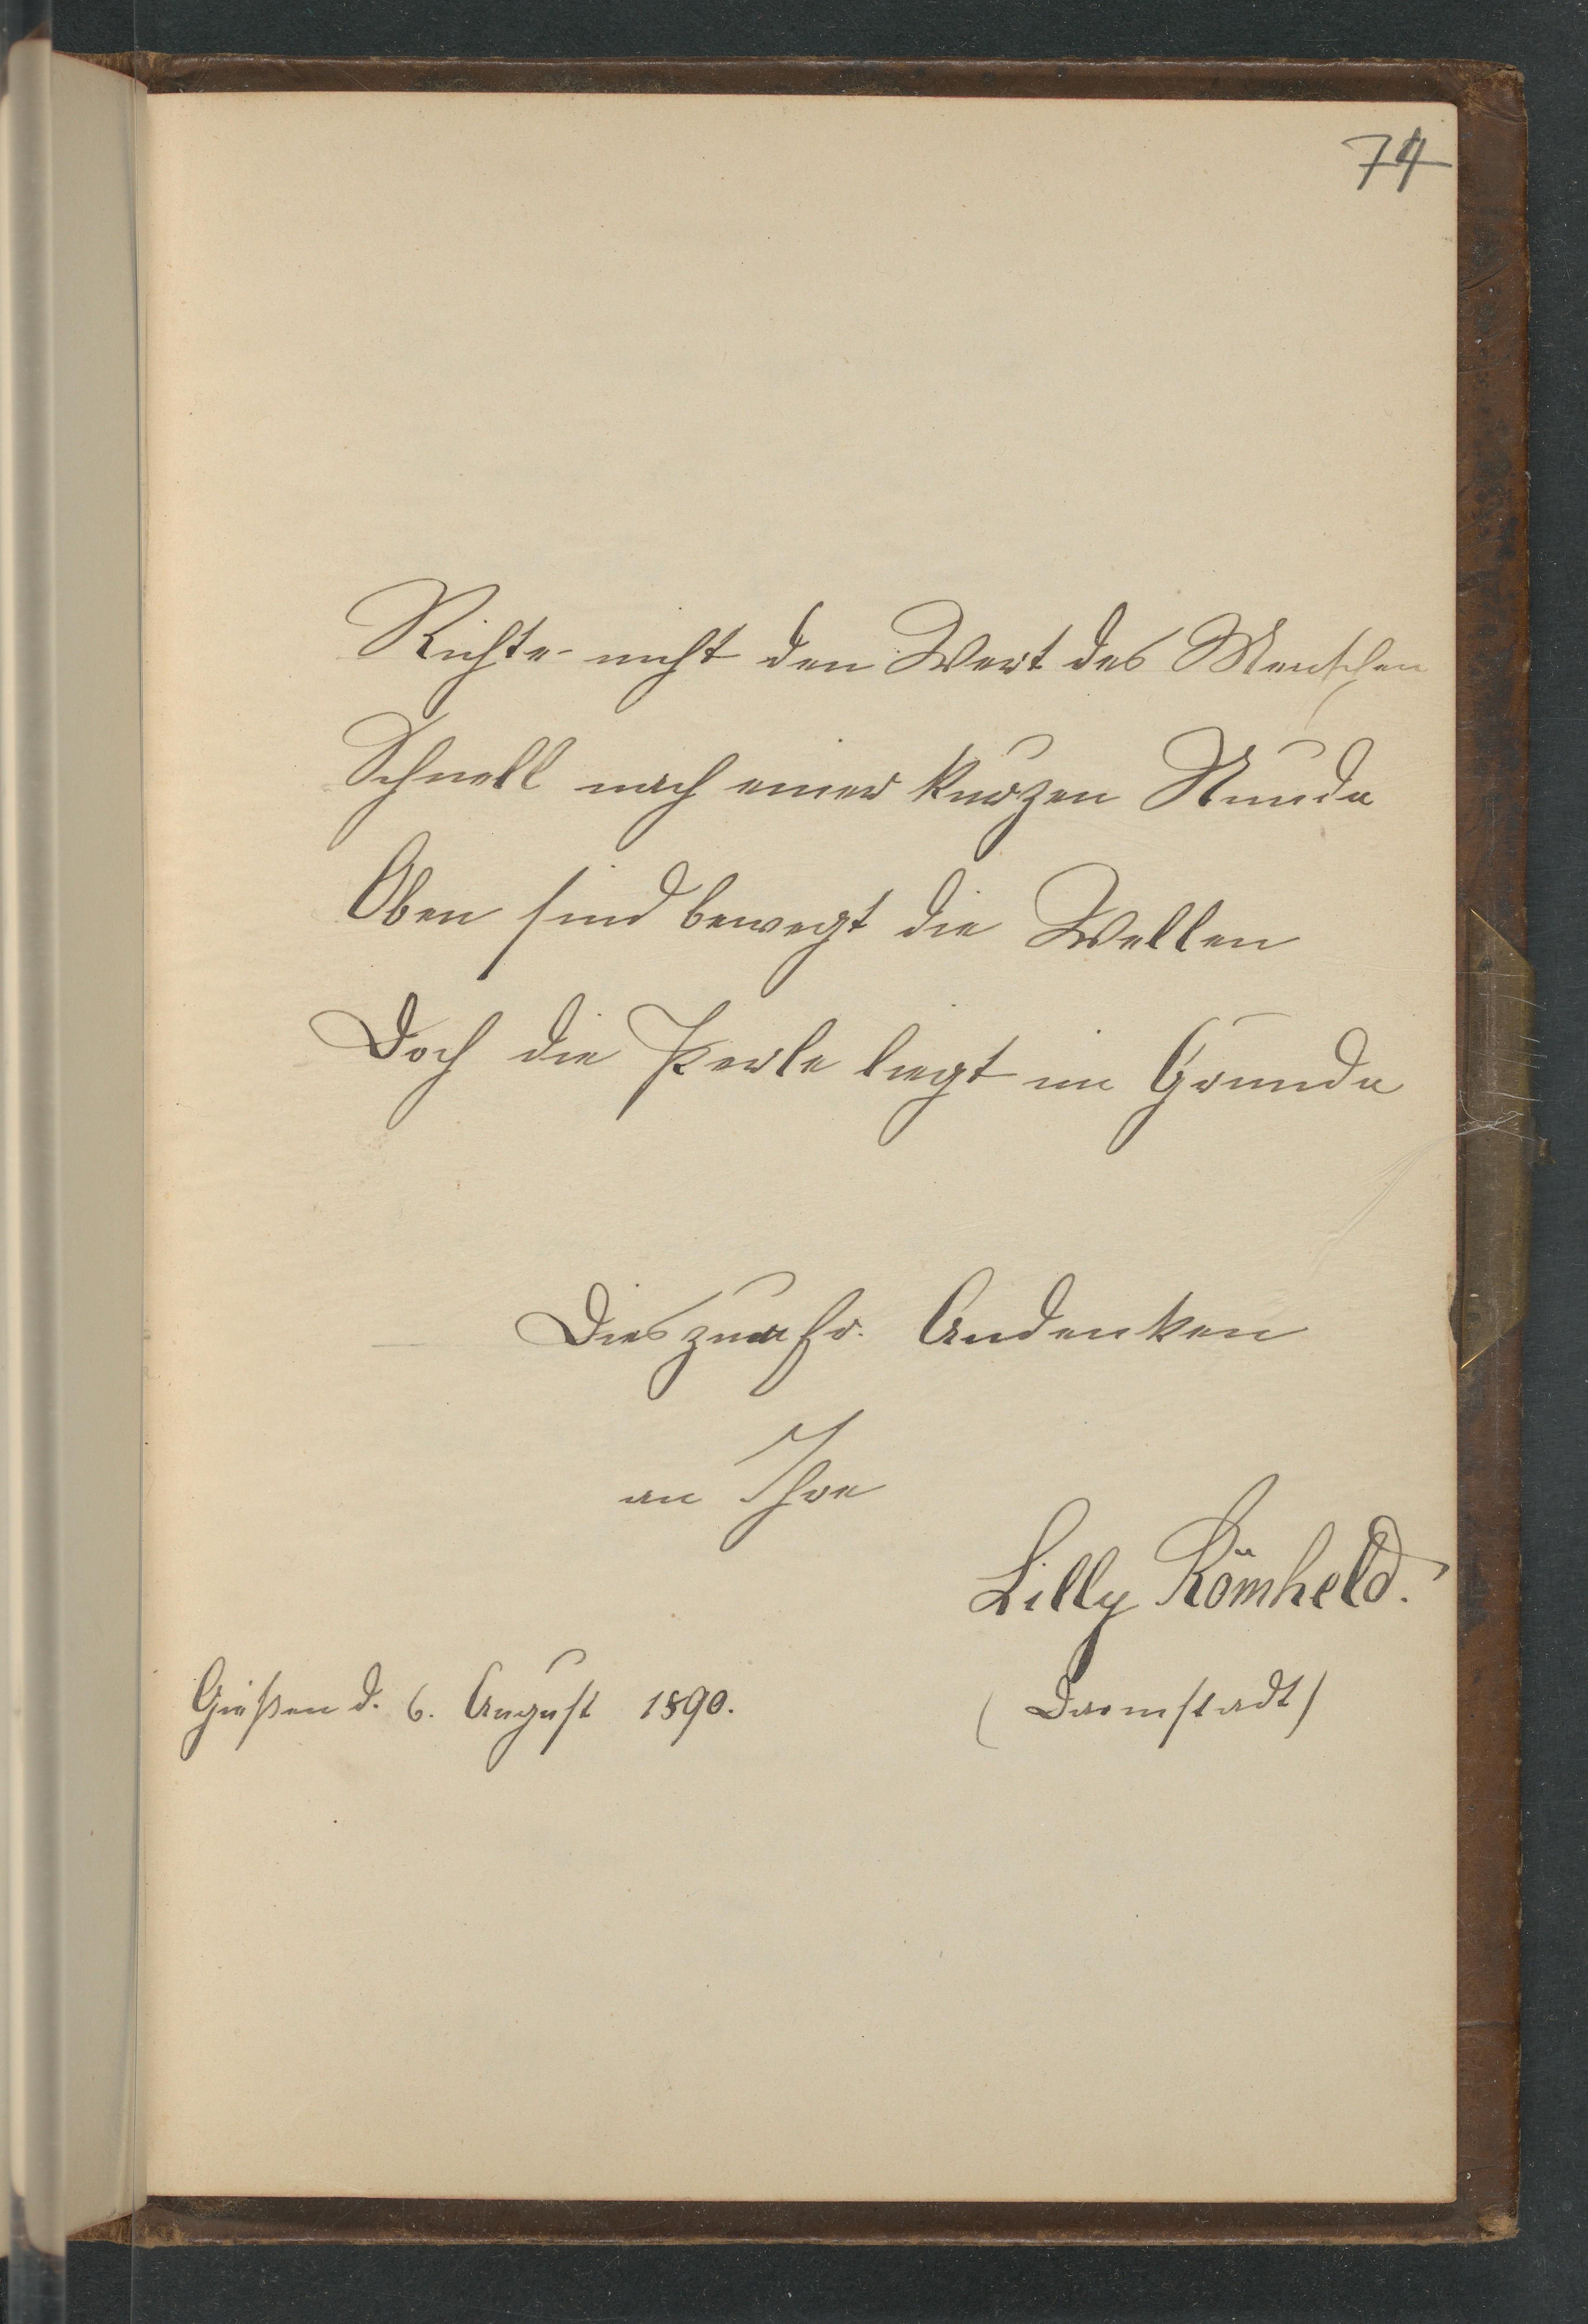 74
Richte nicht den Wert des Menschen
Schnell nach einer kurzen Stunde
Oben sind bewegt die Wellen
Doch die Perle liegt im Grunde
Dies zum fr. Andenken
an Ihre
Lilly Römheld.
Gießen d. 6. August 1890.
(Darmstadt)